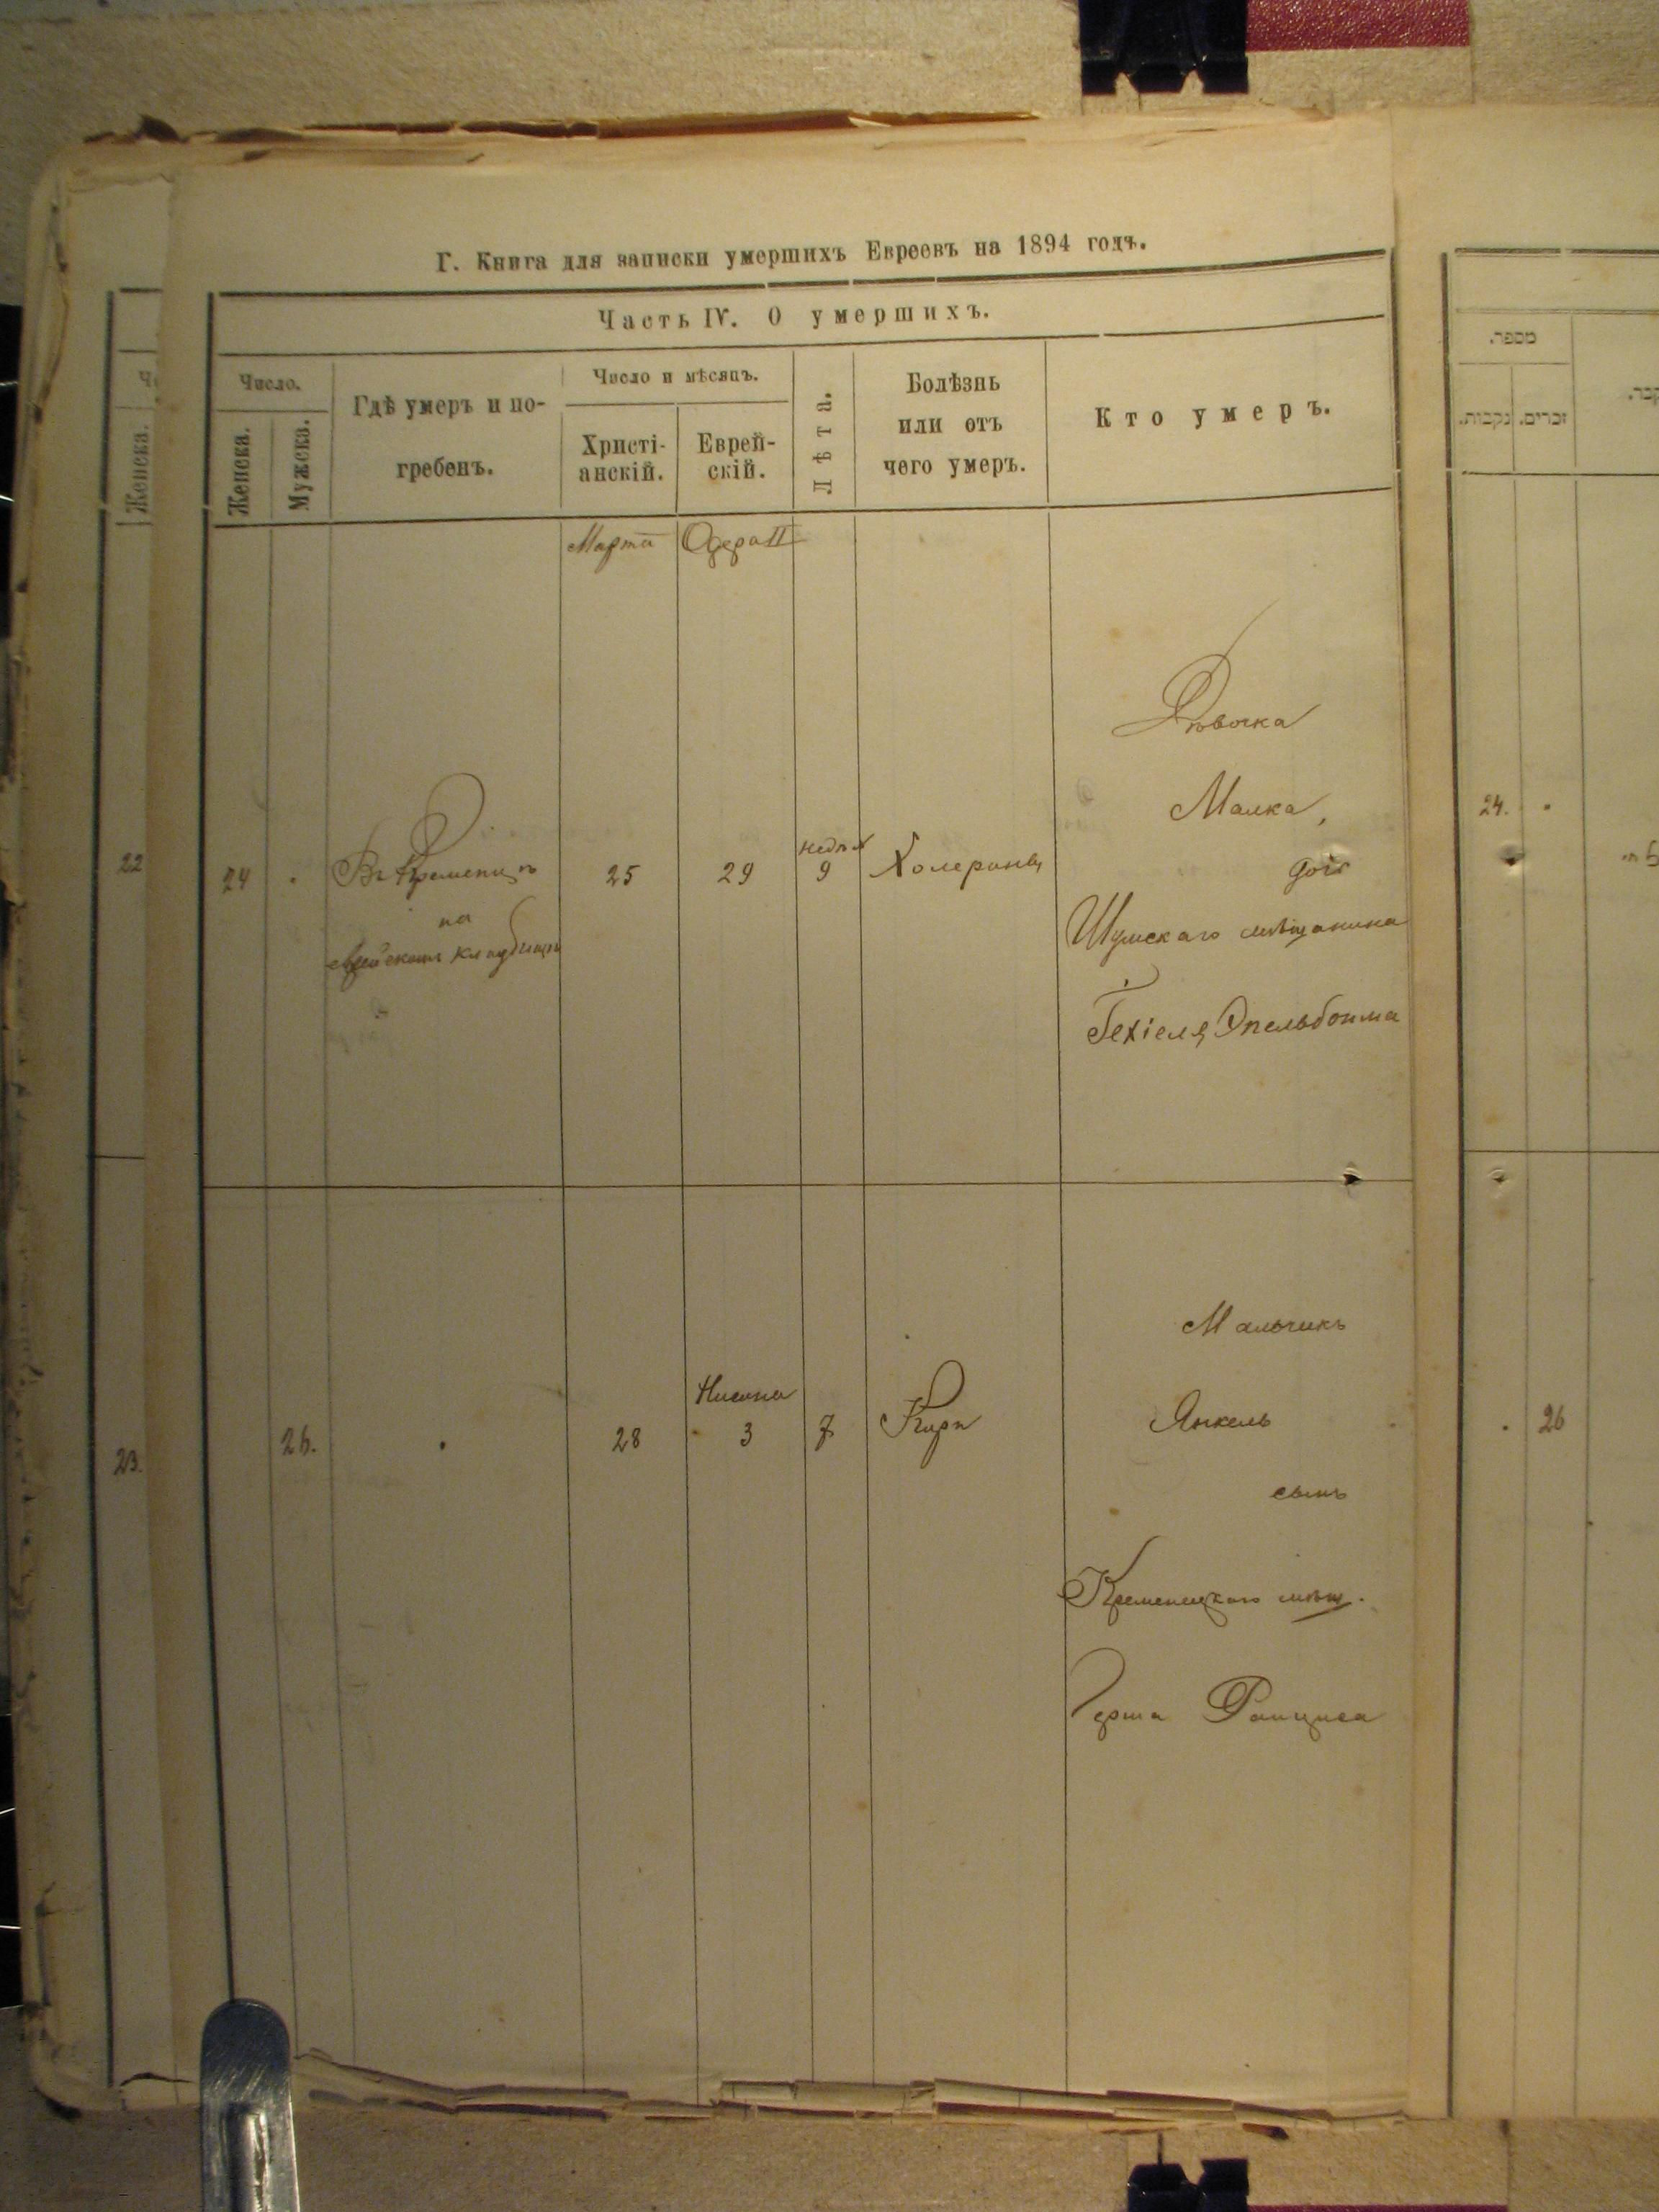 Г. Книга для записки умершихъ Евреевъ на 1894 годъ.
Часть IV. О умершихъ.
Число.
Женска.
Мужска.
Гдѣ умеръ и по-
гребенъ.
Число и мѣсяцъ.
Христі-
анскій.
Еврей-
скій.
Лѣта.
Болѣзнь
или отъ
чего умеръ.
Кто умеръ.
Марта
Одера II
24
Въ Кременцѣ
на
еврейскомъ кладбищѣ
25
29
недѣл
9
Холерины
Дѣвочка
Малка,
дочь
Шумскаго мѣщанина
Іехіеля Эпельбойма
26.
28
Нисона
3
7
Кори
Мальчикъ
Янкель
сынъ
Кременецкаго мѣщ.
Герша
Женска.
22
23.
מספר.
נקבות.
זכרים.
24.
26